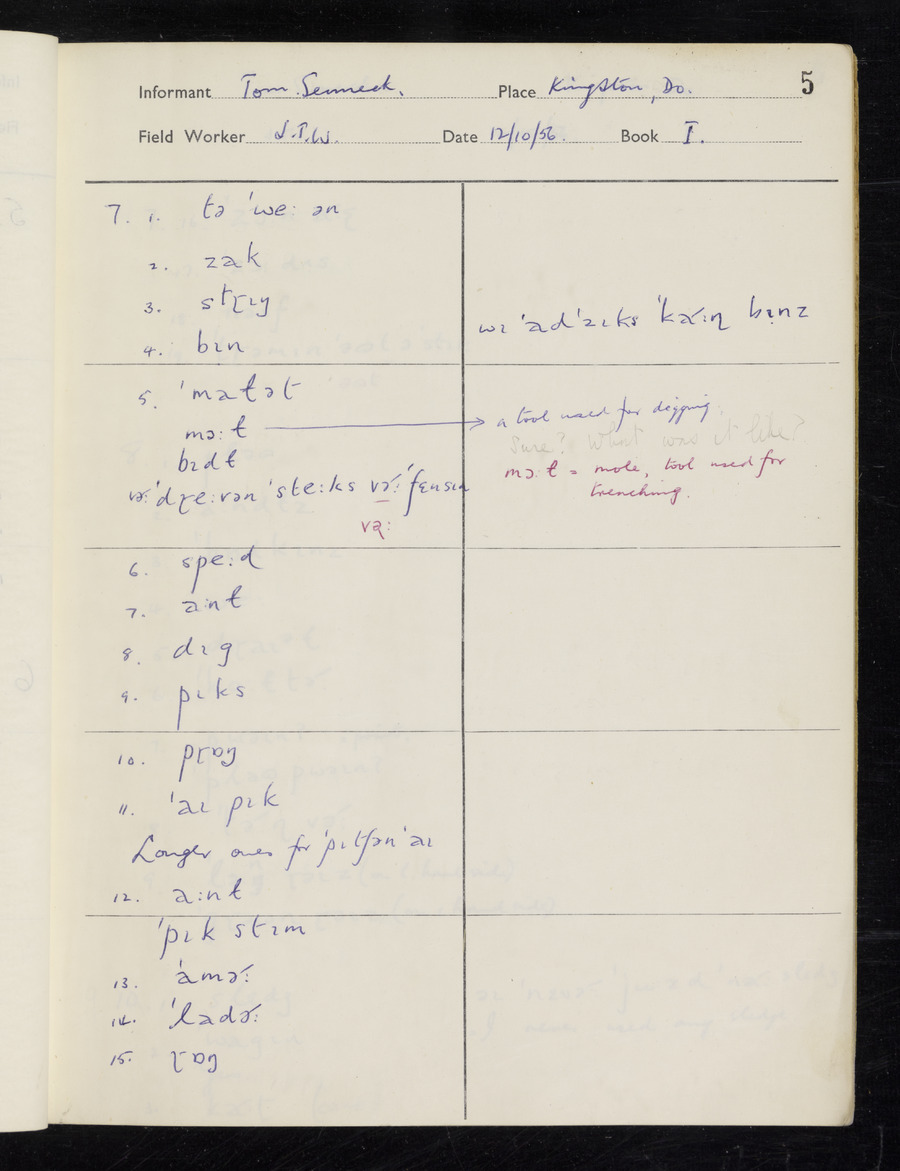 5
Informant Tom Senneck. Place Kingston, Do.
Field Worker J.T.W. Date 12/10/56. Book I.
7. 1. tə ˈweː ən
2. zak
3. stɽɪŋ
4. bɪn
wɪ ˈad ˈaɪks ˈkəɹɪŋ bɪnz
5. ˈmatət
mɔːɫ
a tool used for digging.
Sure? What was it like?
bɪdɫ
mɔːɫ = mole, tool used for
trenching.
ˈsteːks
6. speːd
7. aːnɫ
8. dɪg
9. pɪks
10. pɽɒŋ
11. ˈaɪ pɪk
Longer ones for ˈpɪtʃən ˈaɪ
12. aːnɫ
ˈpɪk stɪm
13. ˈamɚː
14. ˈladɚː
15. ɽɒŋ